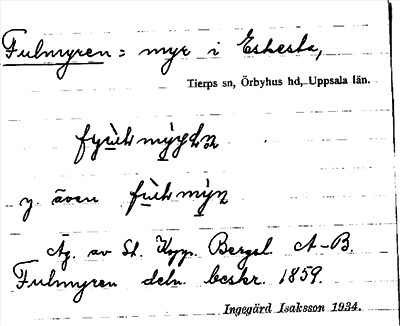 Fulmyren = myr i Eskesta,
Tierps sn, Örbyhus hd, Uppsala län.
y. även
Äg. av St. Kopp. Bergsl. A-B.
Fulmyren deln. beskr. 1859.
Ingegärd Isaksson 1934.